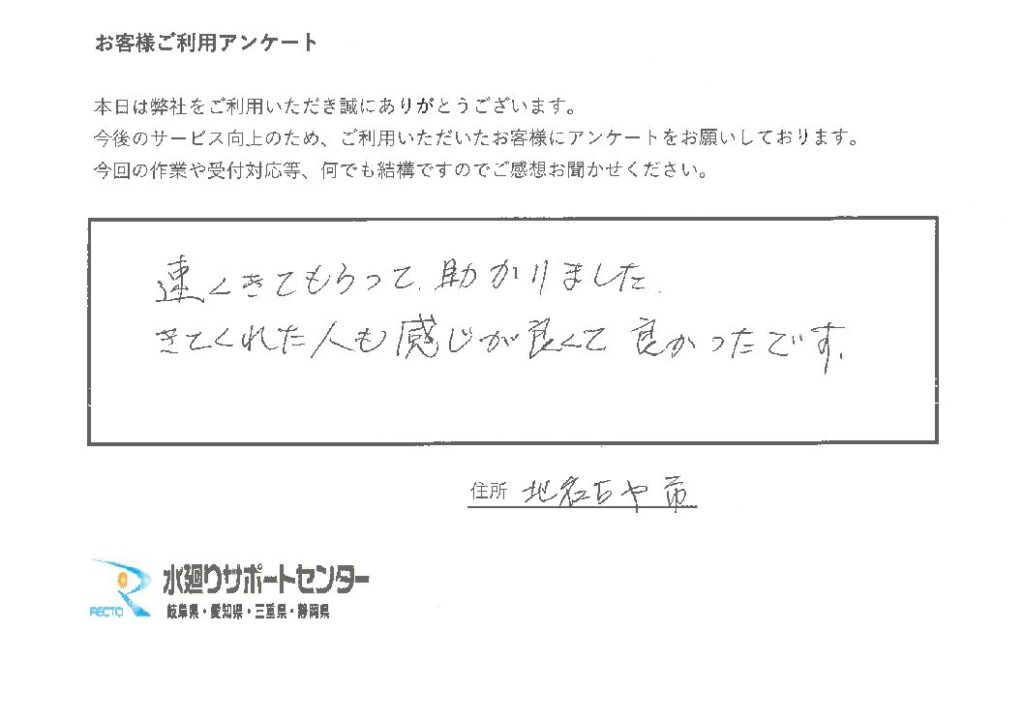 お客様ご利用アンケート
本日は弊社をご利用いただき誠にありがとうございます。
今後のサービス向上のため、ご利用いただいたお客様にアンケートをお願いしております。
今回の作業や受付対応等、何でも結構ですのでご感想お聞かせください。
速くきてもらって、助かりました。
きてくれた人も感じが良くて良かったです。
住所 北名古や市
RECTO
水廻りサポートセンター
岐阜県・愛知県・三重県・静岡県